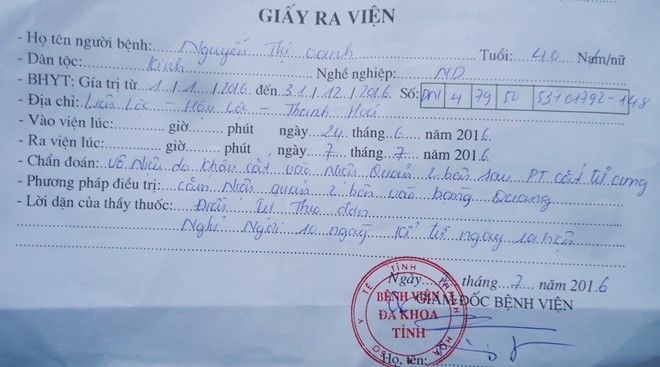 GIẤY RA VIỆN
- Họ tên người bệnh: Nguyễn Thị Oanh Tuổi: 40 Nam/nữ
- Dân tộc: Kinh Nghề nghiệp: ND
- BHYT: Gía trị từ 1/1/2016 đến 31/12/2016 Số: DN 4 79 50 53101792-148
- Địa chỉ: Liên Lộc - Hậu Lộc - Thanh Hoá
- Vào viện lúc: giờ phút ngày 24 tháng 6 năm 2016
- Ra viện lúc: giờ phút ngày 7 tháng 7 năm 2016.
- Chẩn đoán: Vô Niệu do khâu cắt vào Niệu Quản 2 bên sau PT cắt tử cung
- Phương pháp điều trị: cắm Niệu quản 2 bên vào bàng Quang
- Lời dặn của thầy thuốc: Điều trị Theo đơn
Nghỉ Ngơi 10 ngày kể từ ngày ra viện
Ngày tháng 7 năm 2016
GIÁM ĐỐC BỆNH VIỆN
Y TẾ TỈNH THANH HOÁ
BỆNH VIỆN
ĐA KHOA
TỈNH
Họ, tên: